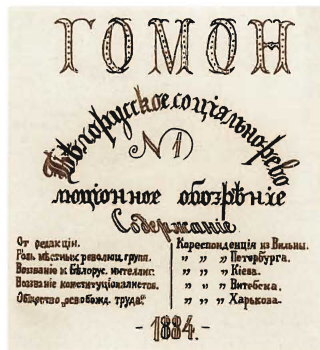 ГОМОН
Бѣлорусское соціяльно-рево
№1
люціонное обозрѣніе
Содержаніе
От редакціи.
Голь мѣстных революц. групп.
Воззванію к бѣлорус. интеллиг.
Воззваніе конституціоналистов.
Общество „освобожд. труда“.
Кореспонденція из Вильны.
„ „ „ Петербурга.
„ „ „ Кіева.
„ „ „ Витебска.
„ „ „ Харькова.
- 1884. -